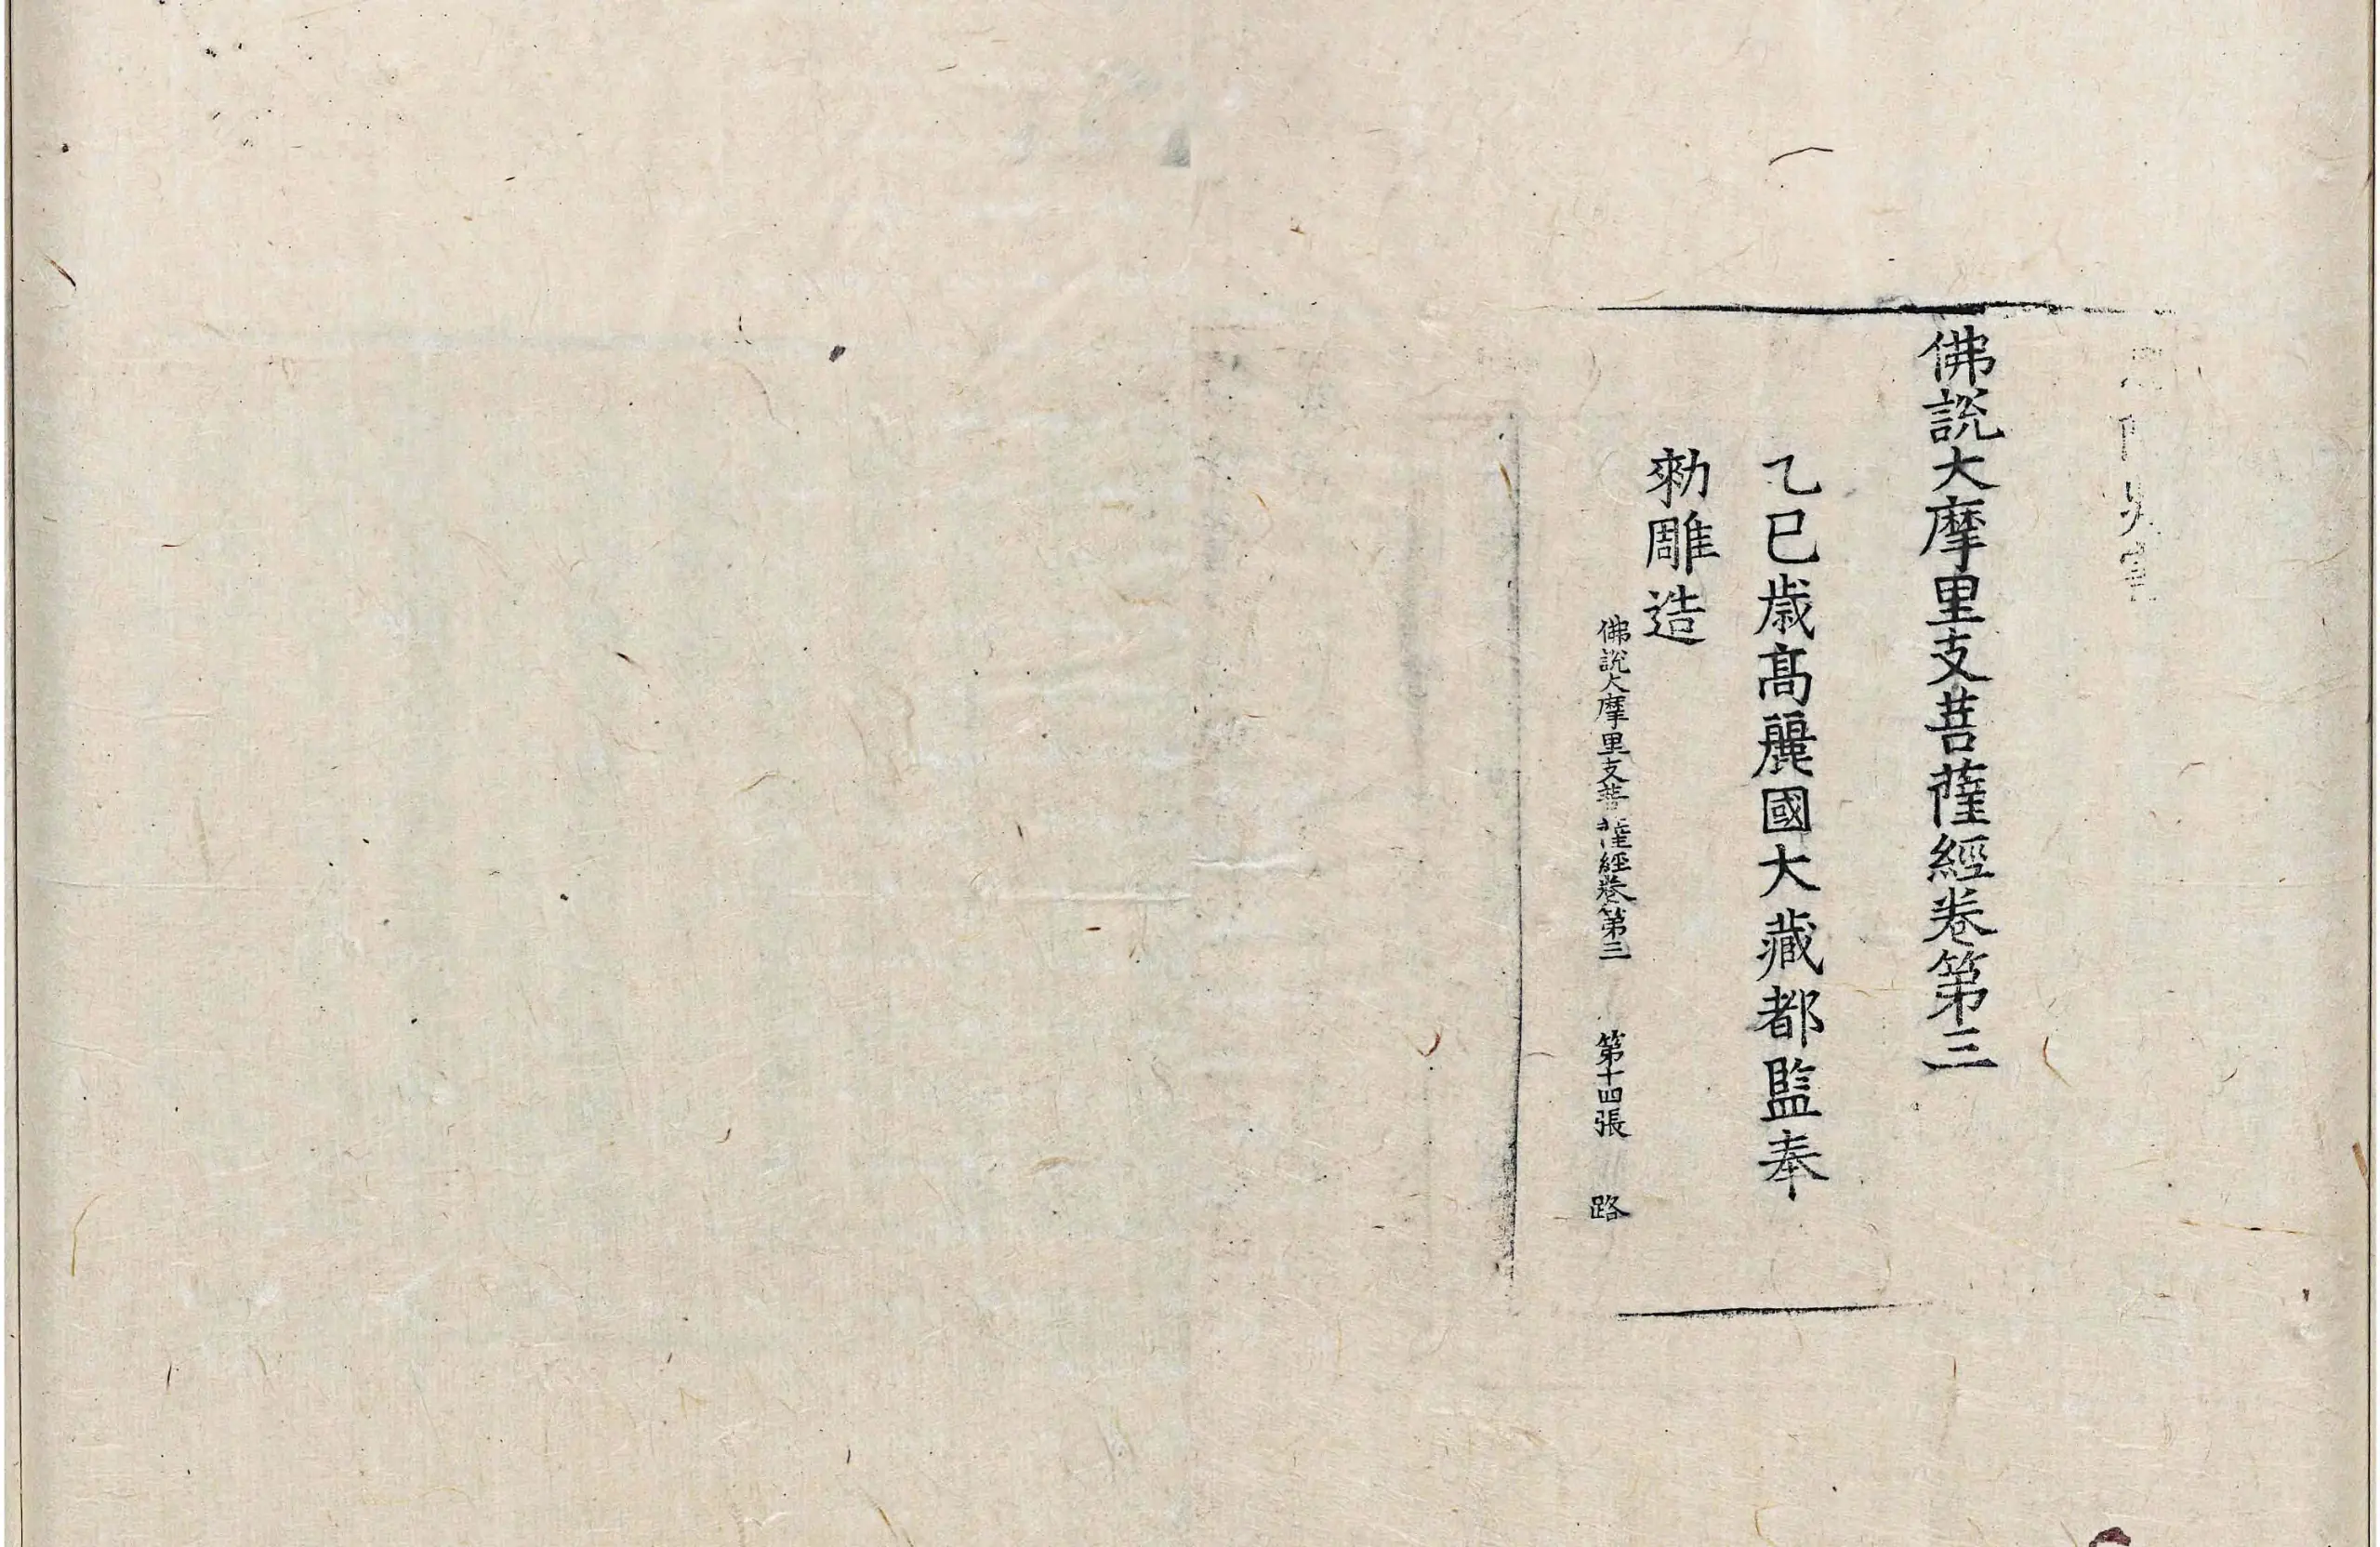 佛說大摩里支菩薩經卷第三
乙巳歲高麗國大藏都監奉
勑雕造
佛說大摩里支菩薩經卷第三 第十四張 路